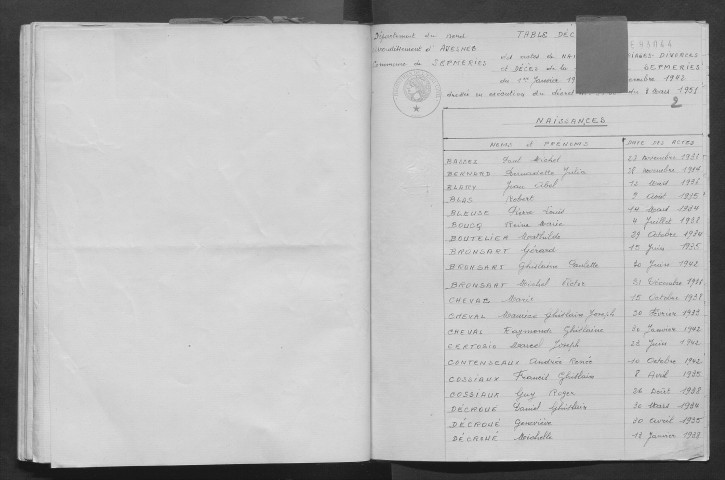 Département du Nord
Arrondissement d' AVESNES
Commune de SEPMERIES
TABLE DÉC
des actes de NAI IAGES-DIVORCES
et DÉCÈS de la SEPMERIES
du 1er Janvier 19 cembre 1942
dressée en exécution du décret du 8 Mars 1951
2
NAISSANCES
NOMS et PRÉNOMS DATE DES ACTES
BASSES Paul Michel novembre
BERNARD Bernadette Julia novembre
BLAMY Jean Abel Mars
BLAS Robert Août
BLEUSE Pierre Louis 14 Mars 1934
BOUCQ Reine Marie 4 Juillet 1938
BOUTELIER Mathilde 29 Octobre 1934
BRONSART Gérard 1er Juin 1935
BRONSART Ghislaine Paulette 20 Juin 1942
BRONSART Michel Victor Décembre
CHEVAL Marie 15 Octobre
CHEVAL Maurice Ghislain Joseph Février
CHEVAL Raymonde Ghislaine Janvier 1942
CERTODIO Marcel Joseph Juin 1942
CONTENSEAUX Andrée Renée 10 Octobre 1942
COSSIAUX Francis Ghislain 8 Avril 1935
COSSIAUX Guy Roger Août 1938
DÉCROUÉ Daniel Ghislain 30 Mars 1934
DÉCROUÉ Geneviève 20 Avril 1935
DÉCROUÉ Michelle Janvier 1938